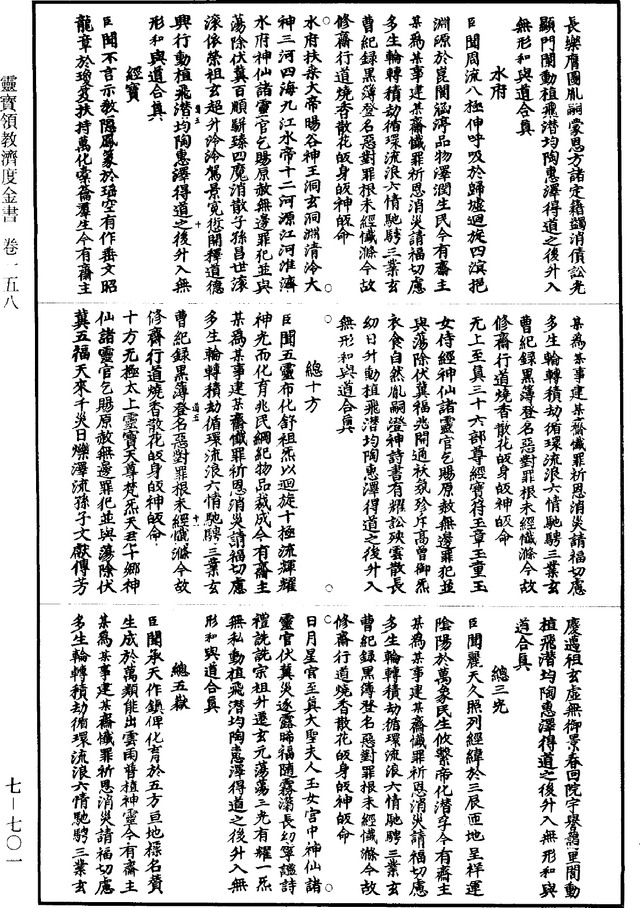 長樂膺圖胤嗣蒙恩方諸定籍蠲消債訟光
顯門閥動植飛潛均陶惠澤得道之後升入
無形和與道合真
水府
臣聞周流八極伸呼吸於歸墟迴旋四溟挹
淵源於崑閬涵濟品物澤潤生民今有齋主
某為某事建某齋懺罪祈恩消災請福切慮
多生輪轉積劫循環流浪六情馳騁三業玄
曹紀錄黑簿登名惡對罪根未經懺滌今故
修齋行道燒香散花皈身皈神皈命
水府扶桑大帝暘谷神王洞玄洞淵清泠大
神三河四海九江水帝十二河源江河淮濟
水府神仙諸靈官乞賜原赦無邊罪犯並與
蕩除伏冀百順駢臻四魔消散子孫昌世滾
滾依榮祖玄超升泠泠駕景冤愆開釋道德
興行動植飛潛均陶惠澤得道之後升入無
形和與道合真
經寶
臣聞不言示教隱鳳篆於碧空有作垂文昭
龍章於瓊笈扶持萬化橐籥羣生今有齋主
某為某事建某齋懺罪祈恩消災請福切慮
多生輪轉積劫循環流浪六情馳騁三業玄
曹紀錄黑簿登名惡對罪根未經懺滌今故
修齋行道燒香散花皈身皈神皈命
无上至真三十六部尊經寶符玉章玉童玉
女侍經神仙諸靈官乞賜原赦無邊罪犯並
與蕩除伏冀福兆開通祅氛殄斥高曾御炁
衣食自然胤嗣澄神詩書有耀訟殃雲散長
幼日升動植飛潛均陶惠澤得道之後升入
無形和與道合真
總十方
臣聞五靈布化舒祖炁以迴旋十極流輝耀
神光而化育兆民綱紀物品裁成今有齋主
某為某事建某齋懺罪祈恩消災請福切慮
多生輪轉積劫循環流浪六情馳騁三業玄
曹紀錄黑簿登名惡對罪根未經懺滌今故
修齋行道燒香散花皈身皈神皈命
十方无極太上靈寶天尊梵炁天君十鄉神
仙諸靈官乞賜原赦無邊罪犯並與蕩除伏
冀五福天來千災日爍澤流孫子文獻傳芳
慶遷祖玄虛無御景春回院宇譽藹里閭動
植飛潛均陶惠澤得道之後升入無形和與
道合真
總三光
臣聞麗天久照列經緯於三辰匝地呈祥運
陰陽於萬象民生攸繫帝化潛孚今有齋主
某為某事建某齋懺罪祈恩消災請福切慮
多生輪轉積劫循環流浪六情馳騁三業玄
曹紀錄黑簿登名惡對罪根未經懺滌今故
修齋行道燒香散花皈身皈神皈命
日月星官至真大聖夫人玉女宮中神仙諸
靈官伏冀災逐露晞福隨霧藹長幼寧謐詩
禮詵詵宗祖升遷玄元蕩蕩三光有耀一炁
無私動植飛潛均陶惠澤得道之後升入無
形和與道合真
總五嶽
臣聞承天作鎮俾化育於五方亘地標名贊
生成於萬類能出雲雨普植神靈今有齋主
某為某事建某齋懺罪祈恩消災請福切慮
多生輪轉積劫循環流浪六情馳騁三業玄
靈寶領教濟度金書 卷一五八
七—七〇一